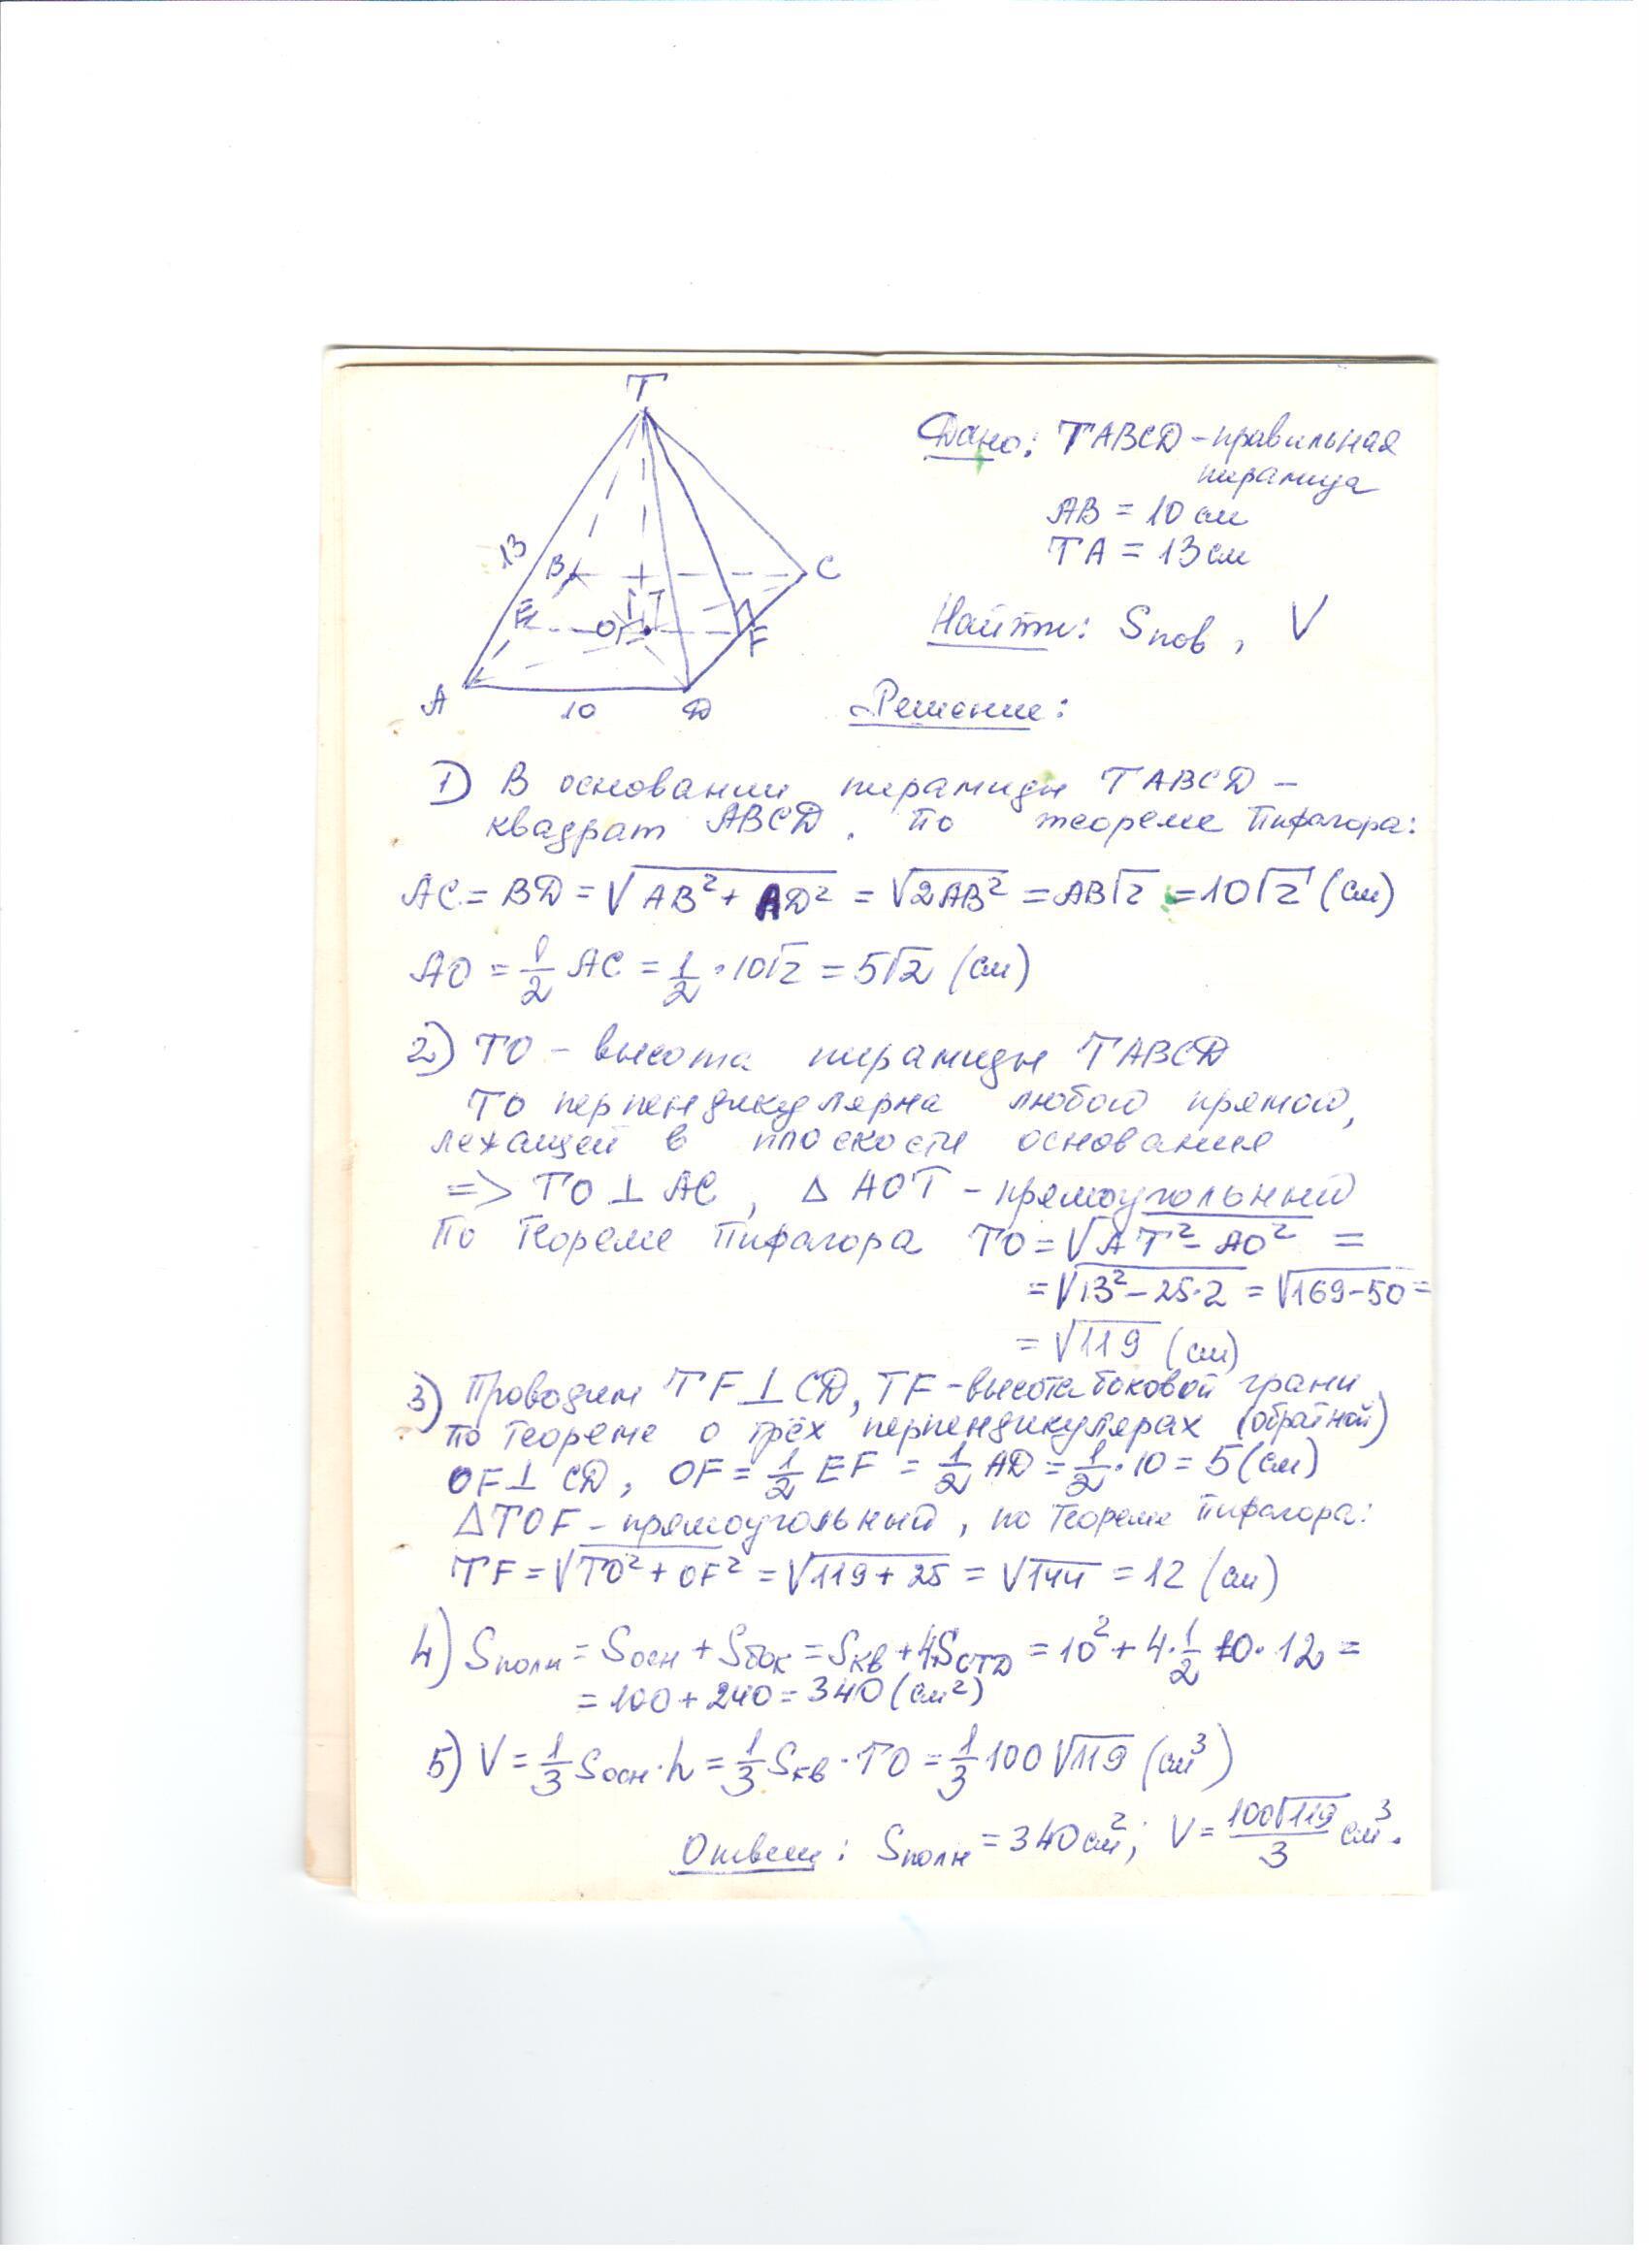 T
Дано: TABCD – правильная
пирамида
AB = 10 см
TA = 13 см
13
B
C
E
O
F
Найти: Sпов, V
A
10
D
Решение:
1) В основании пирамиды TABCD –
квадрат ABCD. По теореме Пифагора:
AC = BD = √(AB² + AD²) = √(2AB²) = AB√2 = 10√2 (см)
AO = 1/2 AC = 1/2 · 10√2 = 5√2 (см)
2) TO – высота пирамиды TABCD
TO перпендикулярна любой прямой,
лежащей в плоскости основания
=> TO ⊥ AC, Δ AOT – прямоугольный
По теореме Пифагора TO = √(AT² – AO²) =
= √(13² – 25·2) = √(169 – 50) =
= √119 (см)
3) Проводим TF ⊥ CD, TF – высота боковой грани
по теореме о трёх перпендикулярах (обратной)
OF ⊥ CD, OF = 1/2 EF = 1/2 AD = 1/2 · 10 = 5 (см)
ΔTOF – прямоугольный, по теореме Пифагора:
TF = √(TO² + OF²) = √(119 + 25) = √144 = 12 (см)
4) Sполн = Sосн + Sбок = Sкв + 4SCTD = 10² + 4·1/2 10·12 =
= 100 + 240 = 340 (см²)
5) V = 1/3 Sосн·h = 1/3 Sкв · TO = 1/3 100 √119 (см³)
Ответ: Sполн = 340 см²; V = 100√119/3 см³.